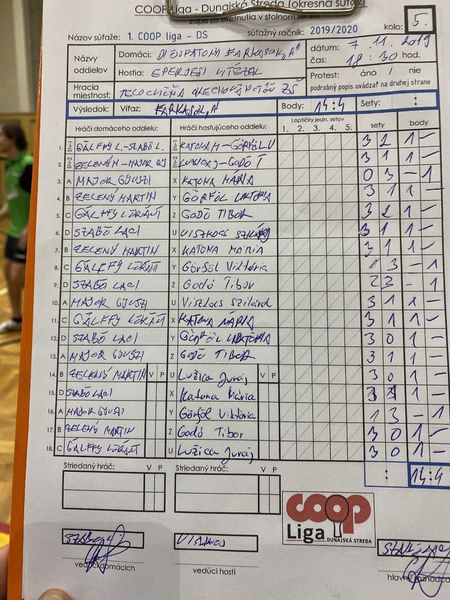 COOP Liga - Dunajská Streda (okresná súťaž)
zápis zo stretnutia v stolnom tenise
Názov súťaže: 1. COOP liga - DS súťažný ročník: 2019/2020 kolo: 5.
Názvy oddielov
Domáci: FARKASOK „A"
Hostia: EPERJESI VITÉZEK
dátum: 7. 11. 2019
čas: 18:30 hod.
Hracia miestnosť: TELOCVIČŇA ZŠ
Protest: áno / nie
podrobný popis uvádzať na druhej strane
Výsledok: Víťaz: FARKASOK „A" Body: 14:4 Sety: :
Hráči domáceho oddielu: Hráči hosťujúceho oddielu: Loptičky jedn. setov 1. 2. 3. 4. 5. sety body
1. GÁLFFY L.-SZABÓ L. KATONA M-GÖRFÖL V 3 2 1 -
2. ZELENÝ M-MAJOR GY GODÓ T 3 1 1 -
3. A MAJOR GYUSZI X KATONA MÁRIA 0 3 - 1
4. B ZELENÝ MARTIN Y GÖRFÖL VIKTÓRIA 3 1 1 -
5. C GÁLFFY LÓRÁNT Z GODÓ TIBOR 3 2 1 -
6. D SZABÓ LACI U 3 1 1 -
7. B ZELENÝ MARTIN X KATONA MÁRIA 3 1 1 -
8. C GÁLFFY LÓRÁNT Y Görföl Viktória 1 3 - 1
9. D SZABÓ LACI Z Godó Tibor 2 3 - 1
10. A MAJOR GYUSZI U Viszlocs Szilárd 3 1 1 -
11. C GÁLFFY LÓRÁNT X KATONA MÁRIA 3 1 1 -
12. D SZABÓ LACI Y GÖRFÖL VIKTÓRIA 3 0 1 -
13. A MAJOR GYUSZI Z GODÓ TIBOR 3 1 1 -
14. B ZELENÝ MARTIN V P U Lužica Juraj V P 3 0 1 -
15. D SZABÓ LACI X Katona Mária 3 1 -
16. A MAJOR GYUSZI Y Görföl Viktória 1 3 - 1
17. B ZELENÝ MARTIN Z Godó Tibor 3 0 1 -
18. C GÁLFFY LÓRÁNT U Lužica Juraj 3 0 1 -
Striedaný hráč: V P Striedaný hráč: V P : 14:4
coop
Liga DUNAJSKÁ STREDA
vedúci domácich
vedúci hostí
hlavný rozhodca